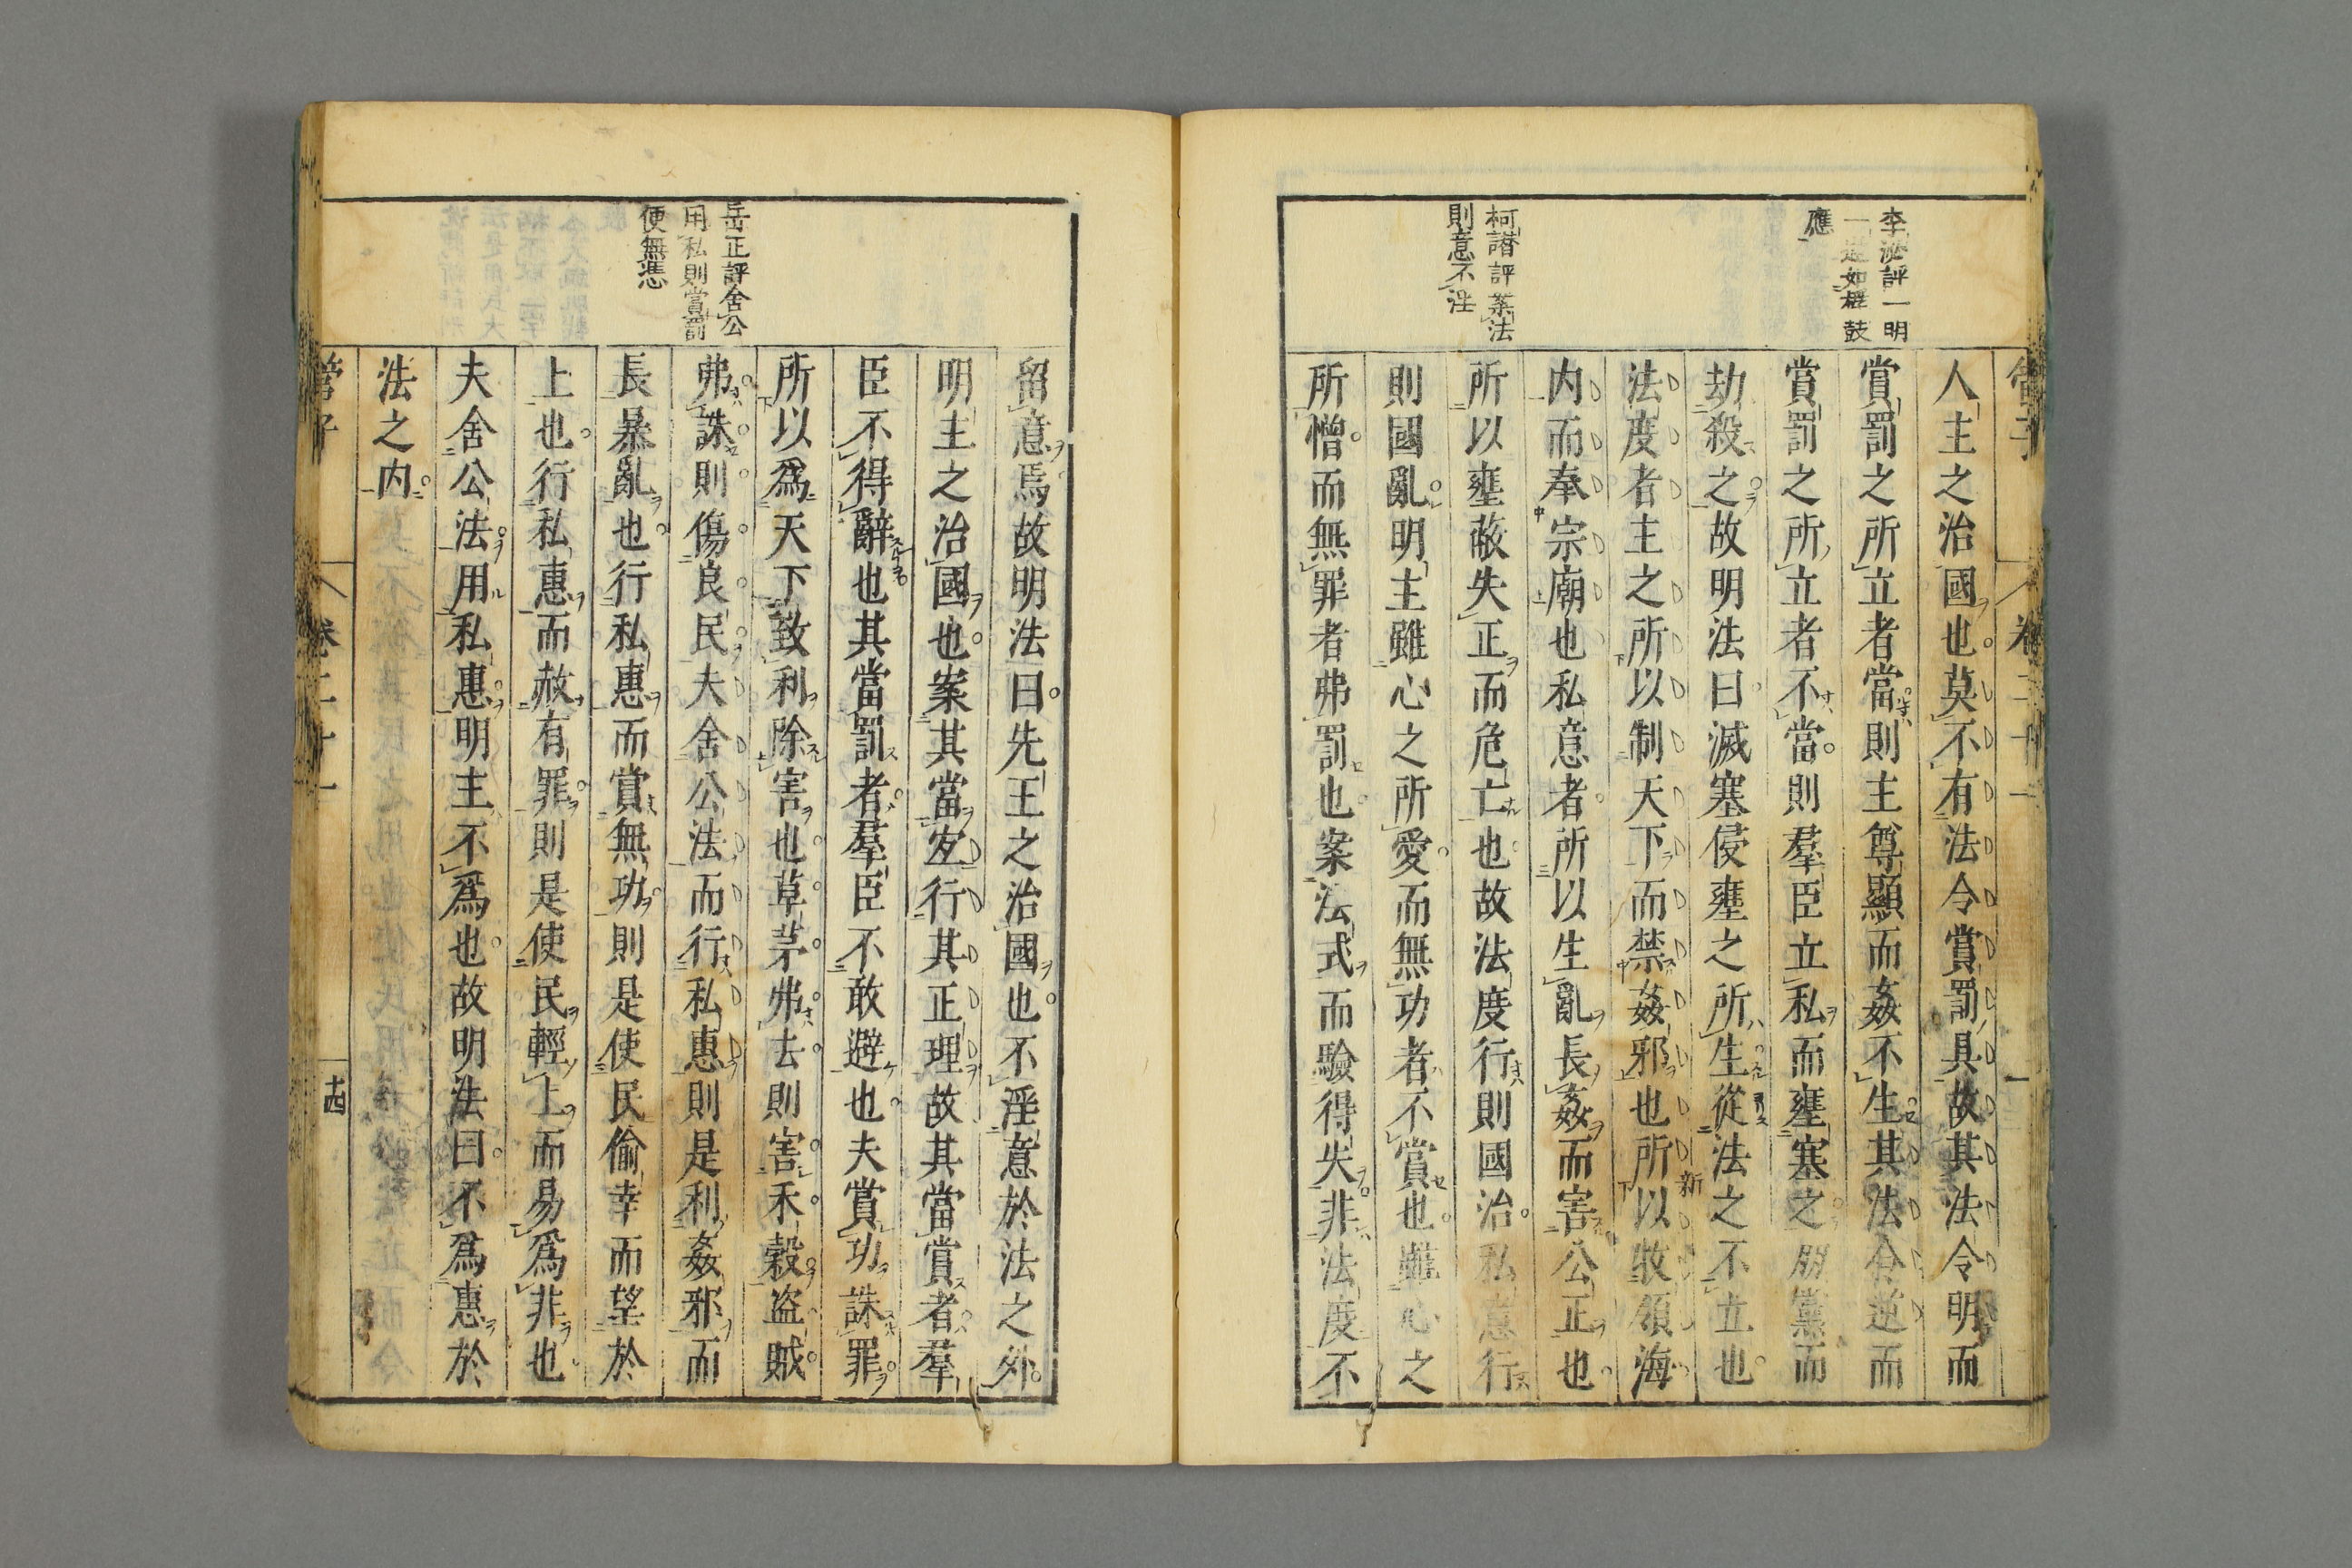 管子
卷二十一
李泌評一明
一塞如桴鼓
應
柯譜評案法
則意不淫
人主之治國也莫不有法令賞罰具故其法令明而
賞罰之所立者當則主尊顯而姦不生其法令逆而
賞罰之所立者不當則羣臣立私而壅塞之朋黨而
劫殺之故明法曰滅塞侵壅之所生從法之不立也
法度者主之所以制天下而禁姦邪也所以牧領海
内而奉宗廟也私意者所以生亂長姦而害公正也
所以壅蔽失正而危亡也故法度行則國治私意行
則國亂明主雖心之所愛而無功者不賞也雖心之
所憎而無罪者弗罰也案法式而驗得失非法度不
岳正評舍公
用私則賞罰
便無憑
留意焉故明法曰先王之治國也不淫意於法之外
明主之治國也案其當宜行其正理故其當賞者羣
臣不得辭也其當罰者羣臣不敢避也夫賞功誅罪
所以爲天下致利除害也草茅弗去則害禾穀盗賊
弗誅則傷良民夫舍公法而行私惠則是利姦邪而
長暴亂也行私惠而賞無功則是使民偷幸而望於
上也行私惠而赦有罪則是使民輕上而易爲非也
夫舍公法用私惠明主不爲也故明法曰不爲惠於
法之内
管子
卷二十一
十四